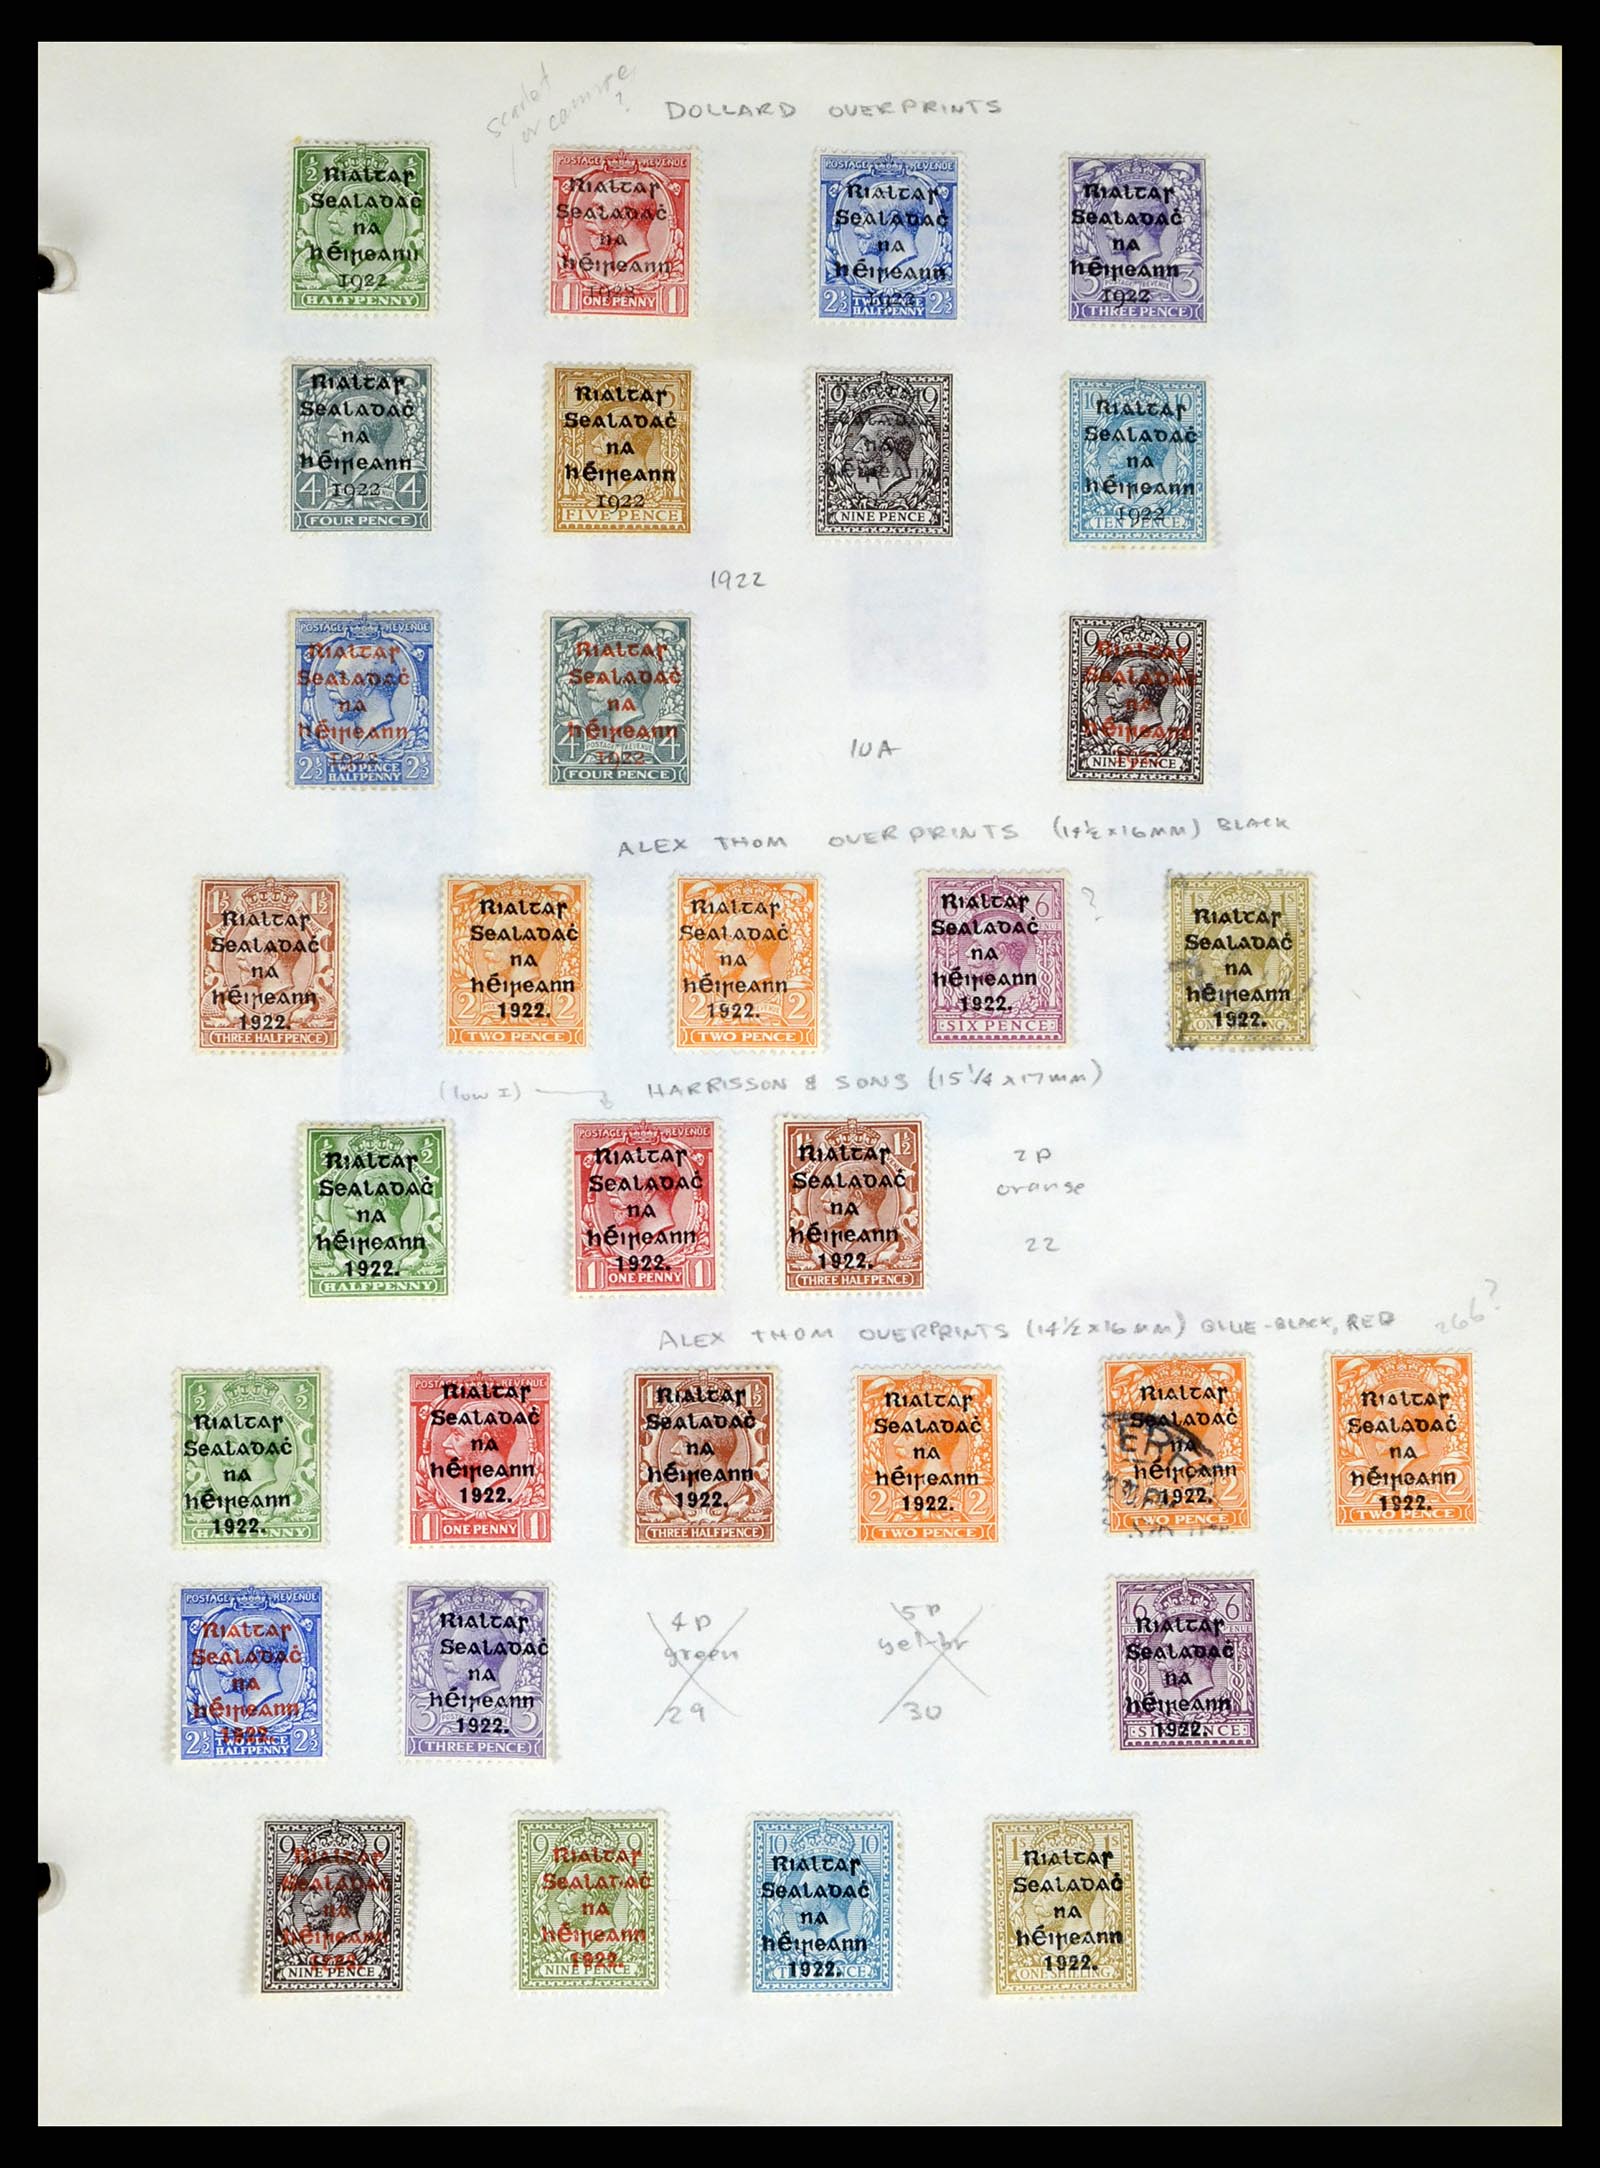 scarlet
or carmine
?
DOLLARD OVERPRINTS
½ Rialtar
Sealadaċ
na
hÉireann
1922
HALFPENNY
POSTAGE REVENUE
Rialtar
Sealadaċ
na
hÉireann
1922
1 ONE PENNY 1
POSTAGE REVENUE
Rialtar
Sealadaċ
na
hÉireann
1922
2½ TWO PENCE HALFPENNY 2½
Rialtar
Sealadaċ
na
hÉireann
3 3
1922
THREE PENCE
Rialtar
Sealadaċ
na
hÉireann
4 1922 4
FOUR PENCE
5
Rialtar
Sealadaċ
na
hÉireann
1922
FIVE PENCE
9 9
na
hÉireann
1922
NINE PENCE
10 10
Rialtar
Sealadaċ
na
hÉireann
1922
TEN PENCE
1922
POSTAGE REVENUE
Rialtar
Sealadaċ
na
hÉireann
1922
2½ TWO PENCE HALFPENNY 2½
Rialtar
Sealadaċ
na
hÉireann
4 POSTAGE REVENUE 4
1922
FOUR PENCE
10A
9 9
Rialtar
Sealadaċ
na
hÉireann
1922
NINE PENCE
ALEX THOM OVERPRINTS (14½ × 16 MM) BLACK
1½ 1½
Rialtar
Sealadaċ
na
hÉireann
1922.
THREE HALFPENCE
Rialtar
Sealadaċ
na
hÉireann
2 1922. 2
TWO PENCE
Rialtar
Sealadaċ
na
hÉireann
2 1922. 2
TWO PENCE
6 6
Rialtar
Sealadaċ
na
hÉireann
1922.
SIX PENCE
?
1s
Rialtar
Sealadaċ
na
hÉireann
1922.
ONE SHILLING
(low I) HARRISSON & SONS (15 1/4 × 17 MM)
½
Rialtar
Sealadaċ
na
hÉireann
1922.
HALFPENNY
POSTAGE REVENUE
Rialtar
Sealadaċ
na
hÉireann
1922.
1 ONE PENNY 1
1½ 1½
Rialtar
Sealadaċ
na
hÉireann
1922.
THREE HALFPENCE
2P
orange
22
ALEX THOM OVERPRINTS (14½ × 16 MM) BLUE-BLACK, RED
266?
½ ½
Rialtar
Sealadaċ
na
hÉireann
1922.
HALFPENNY
POSTAGE REVENUE
Rialtar
Sealadaċ
na
hÉireann
1922.
1 ONE PENNY 1
1½ 1½
Rialtar
Sealadaċ
na
hÉireann
1922.
THREE HALFPENCE
Rialtar
Sealadaċ
na
hÉireann
2 1922. 2
TWO PENCE
Rialtar
Sealadaċ
na
hÉireann
1922. 2
TWO PENCE
Rialtar
Sealadaċ
na
hÉireann
2 1922. 2
TWO PENCE
POSTAGE REVENUE
Rialtar
Sealadaċ
na
hÉireann
1922.
2½ TWO PENCE HALFPENNY 2½
Rialtar
Sealadaċ
na
hÉireann
3 1922.
THREE PENCE
4P
green
29
5P
yel-br
30
6 6
Rialtar
Sealadaċ
na
hÉireann
1922.
SIX PENCE
9 9
Rialtar
Sealadaċ
na
hÉireann
1922.
NINE PENCE
9 9
Rialtar
Sealadaċ
na
hÉireann
1922.
NINE PENCE
10 10
Rialtar
Sealadaċ
na
hÉireann
1922.
1s 1s
Rialtar
Sealadaċ
na
hÉireann
1922.
ONE SHILLING